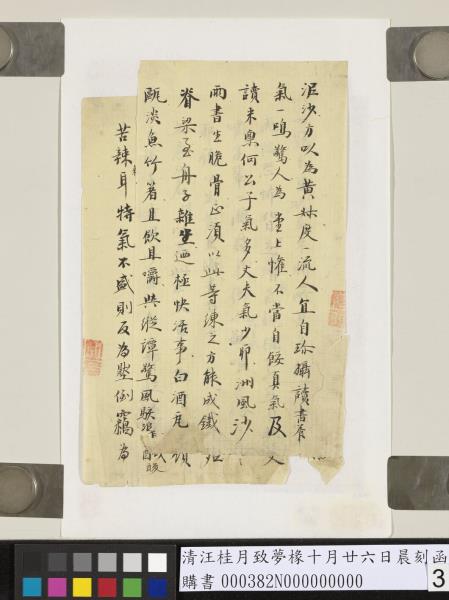 泥沙方以為黃叔度一流人宜自珍攝讀書養
氣一鳴驚人為堂上懽不當自餒真氣及文
讀未奥何公子氣多丈夫氣少耶洲風沙
雨書生脆骨正須以此等練之方能成鐵
脊梁至舟子雜坐迺極快活事白酒瓦
甌淡魚竹箸且飲且嚼與縱譚驚風駭
苦辣耳特氣不盛則反為墊倒竊為
清汪桂月致夢椽十月廿六日晨刻函
購書 000382N000000000
3